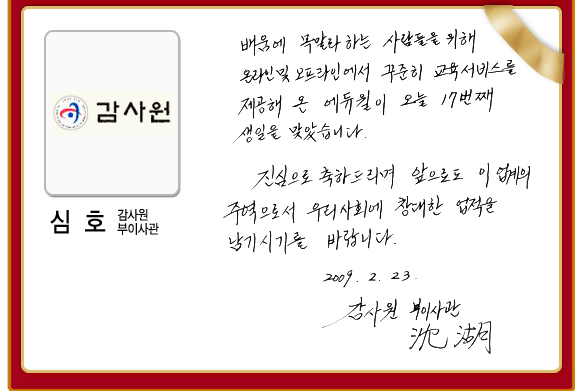 감사원
심 호 감사원
부이사관
배움에 목말라 하는 사람들을 위해
온라인 및 오프라인에서 꾸준히 교육서비스를
제공해 온 에듀윌이 오늘 17번째
생일을 맞았습니다.
진심으로 축하드리며 앞으로도 이 업계의
주역으로서 우리사회에 창대한 업적을
남기시기를 바랍니다.
2009. 2. 23.
감사원 부이사관
沈 湖